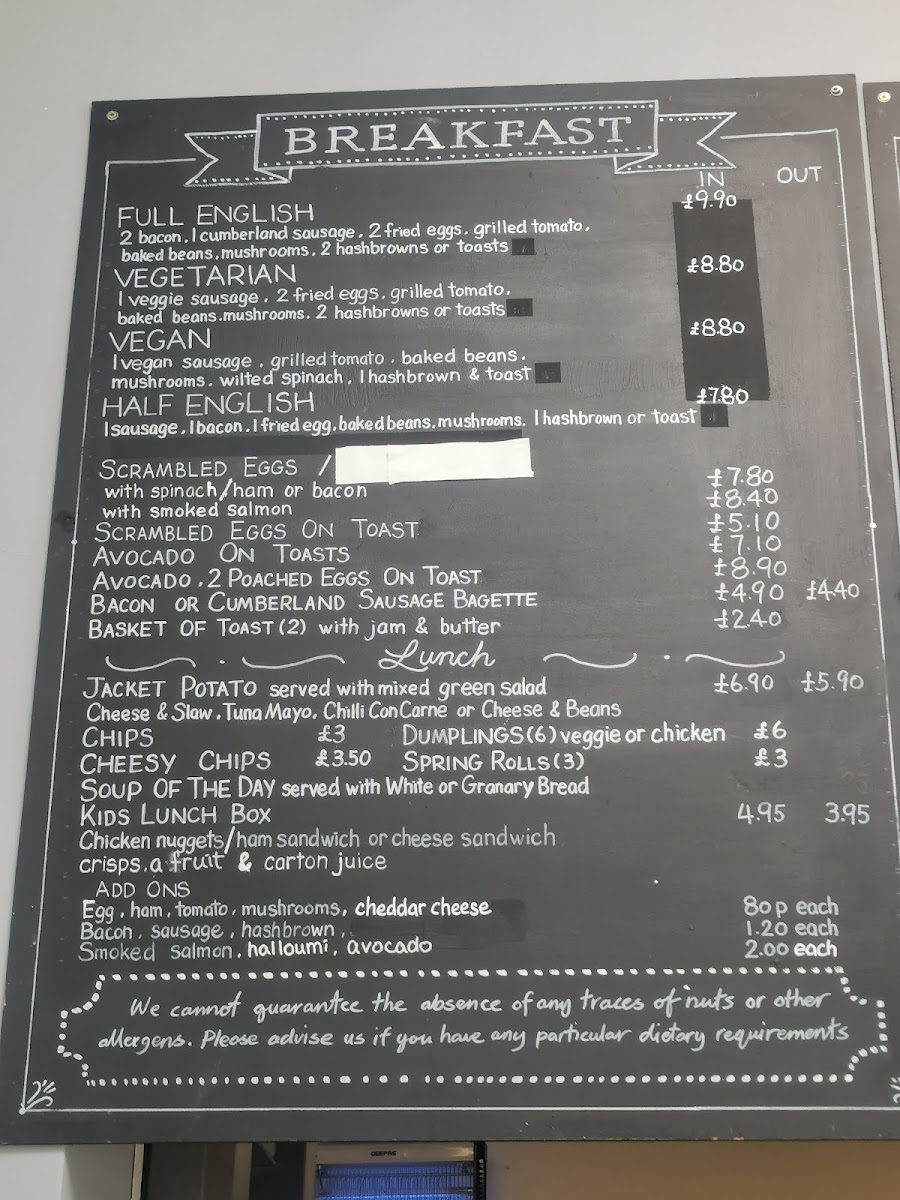 BREAKFAST
IN OUT
FULL ENGLISH £9.90
2 bacon, 1 cumberland sausage, 2 fried eggs, grilled tomato,
baked beans, mushrooms, 2 hashbrowns or toasts
VEGETARIAN £8.80
1 veggie sausage, 2 fried eggs, grilled tomato,
baked beans, mushrooms, 2 hashbrowns or toasts
VEGAN £8.80
1 vegan sausage, grilled tomato, baked beans,
mushrooms, wilted spinach, 1 hashbrown & toast
HALF ENGLISH £7.80
1 sausage, 1 bacon, 1 fried egg, baked beans, mushrooms, 1 hashbrown or toast
SCRAMBLED EGGS /
with spinach/ham or bacon £7.80
with smoked salmon £8.40
SCRAMBLED EGGS ON TOAST £5.10
AVOCADO ON TOASTS £7.10
AVOCADO, 2 POACHED EGGS ON TOAST £8.90
BACON OR CUMBERLAND SAUSAGE BAGETTE £4.90 £4.40
BASKET OF TOAST (2) with jam & butter £2.40
Lunch
JACKET POTATO served with mixed green salad £6.90 £5.90
Cheese & Slaw, Tuna Mayo, Chilli Con Carne or Cheese & Beans
CHIPS £3 DUMPLINGS (6) veggie or chicken £6
CHEESY CHIPS £3.50 SPRING ROLLS (3) £3
SOUP OF THE DAY served with White or Granary Bread
KIDS LUNCH BOX 4.95 3.95
Chicken nuggets/ham sandwich or cheese sandwich
crisps, a fruit & carton juice
ADD ONS
Egg, ham, tomato, mushrooms, cheddar cheese 80p each
Bacon, sausage, hashbrown, 1.20 each
Smoked salmon, halloumi, avocado 2.00 each
We cannot guarantee the absence of any traces of nuts or other
allergens. Please advise us if you have any particular dietary requirements
GEEPAS